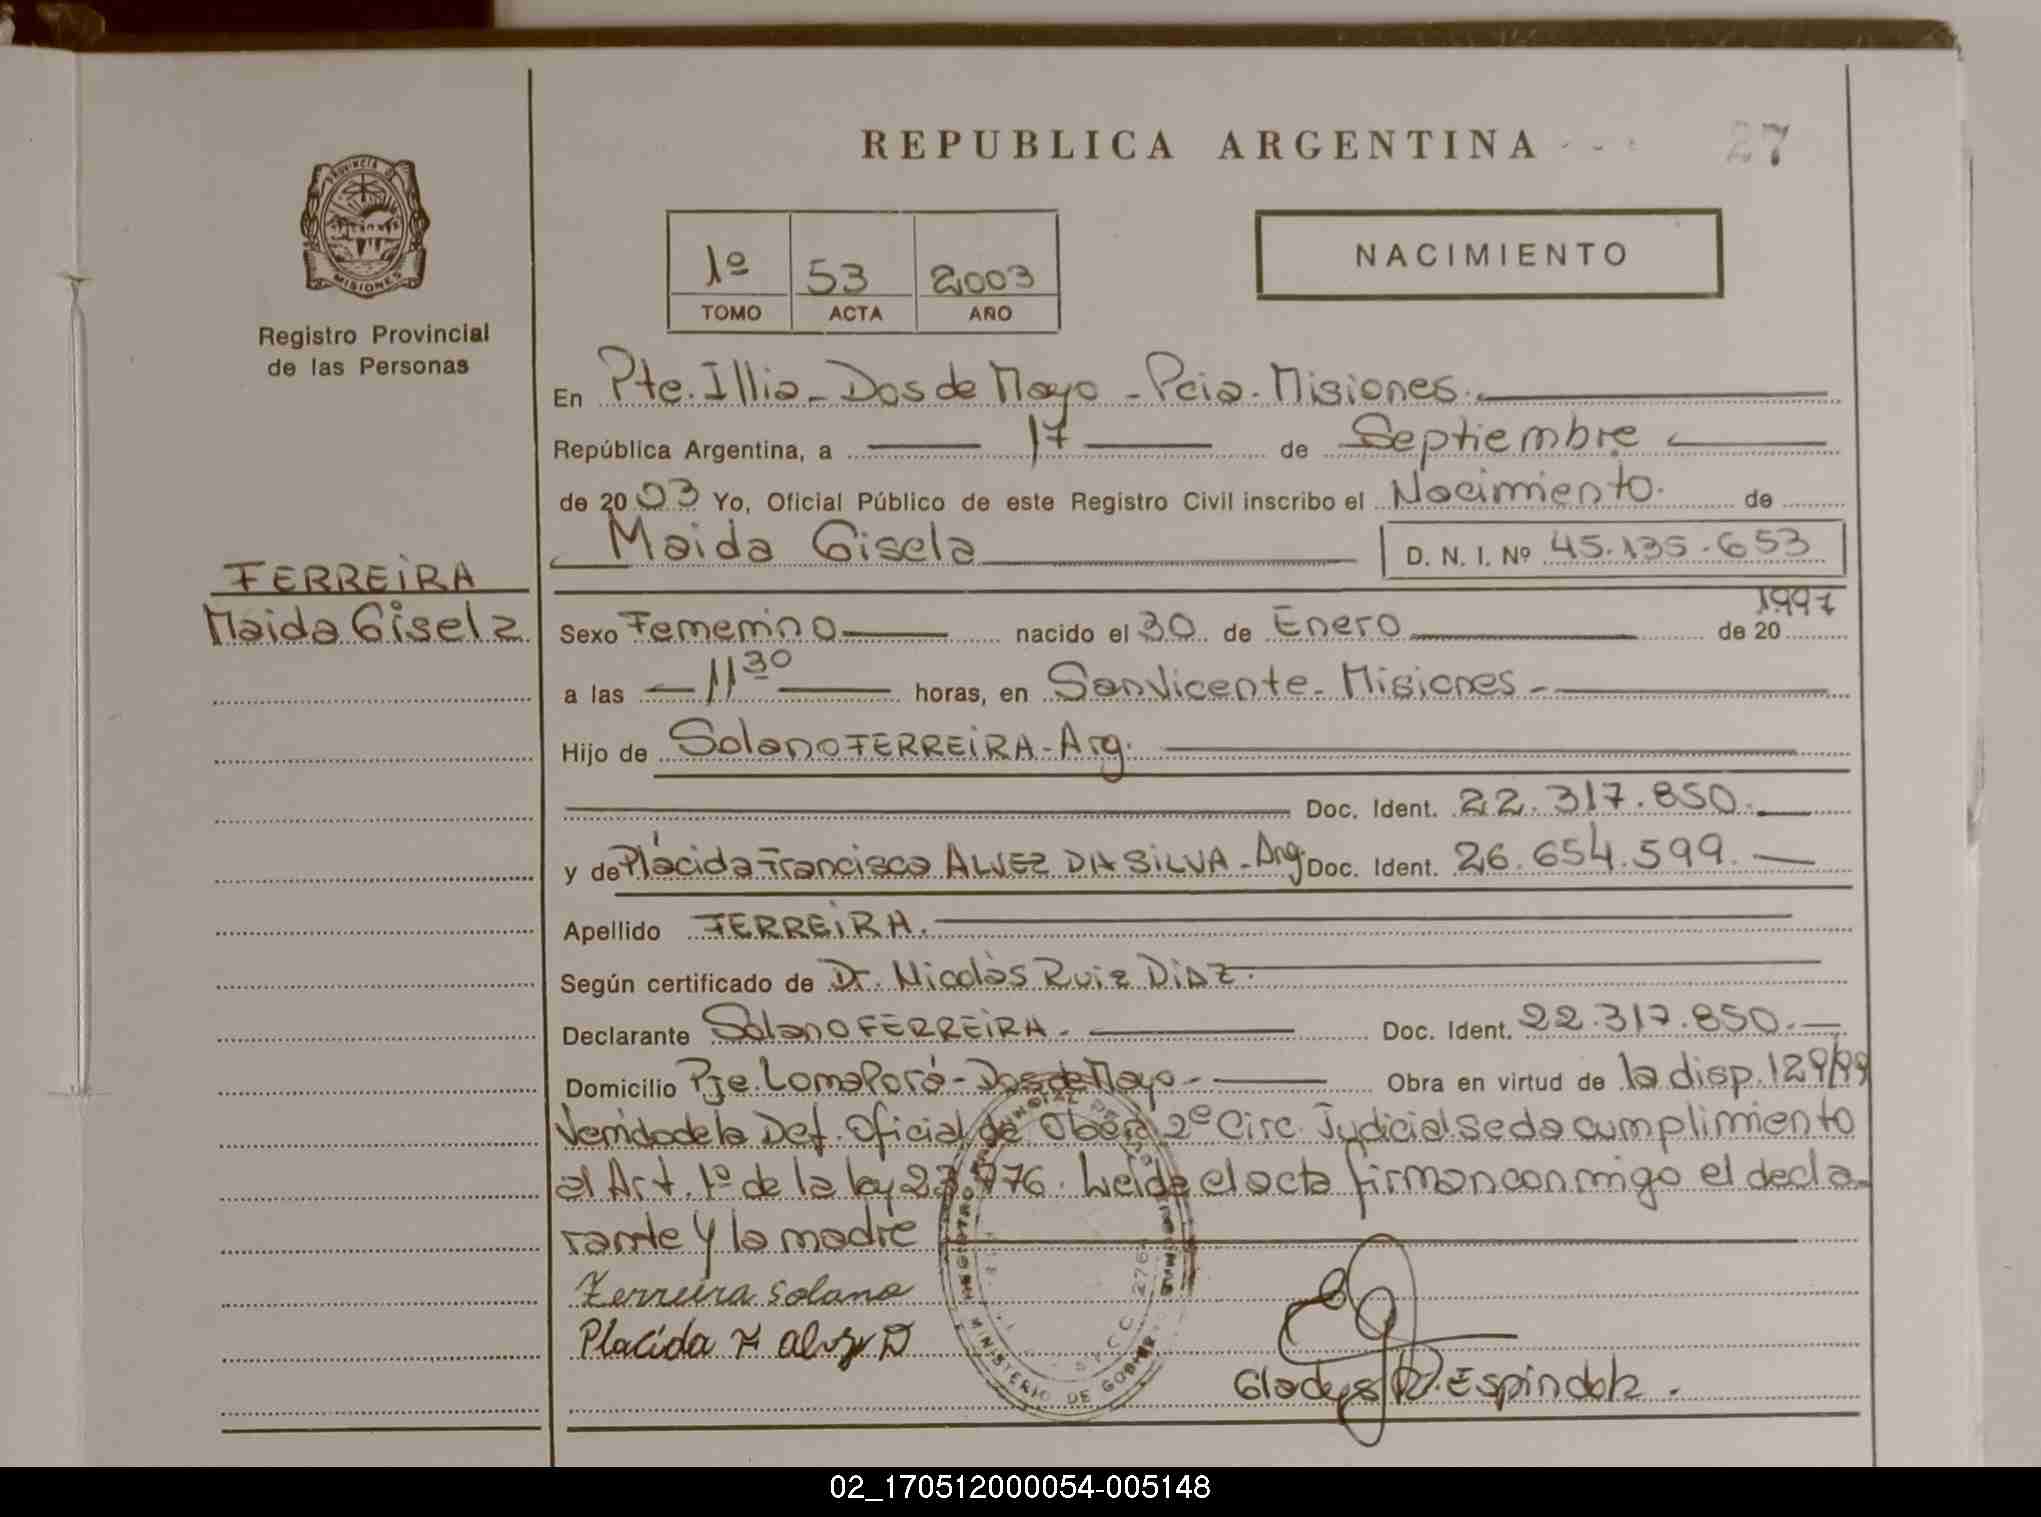 REPUBLICA ARGENTINA
27
PROVINCIA DE
MISIONES
Registro Provincial
de las Personas
1º 53 2003
TOMO ACTA AÑO
NACIMIENTO
En Pte. Illia - Dos de Mayo - Pcia. Misiones.
República Argentina, a 17 de Septiembre
de 2003 Yo, Oficial Público de este Registro Civil inscribo el Nacimiento. de
Maida Gisela D. N. I. Nº 45.135.653
FERREIRA
Maida Gisela
Sexo Femenino nacido el 30 de Enero de 20 1997
a las 11 30 horas, en San Vicente - Misiones -
Hijo de Solano FERREIRA - Arg.
Doc. Ident. 22.317.850.
y de Plácida Francisca ALVEZ DA SILVA - Arg. Doc. Ident. 26.654.599.
Apellido FERREIRA.
Según certificado de Dr. Nicolás Ruiz Diaz.
Declarante Solano FERREIRA. - Doc. Ident. 22.317.850.
Domicilio Pje. Loma Porá - Dos de Mayo - Obra en virtud de la disp. 129/99
Venida de la Def. Oficial de Oberá 2º Circ. Judicial se da cumplimiento
al Art. 1º de la ley 23.776. Leida el acta firman conmigo el decla-
rante y la madre
Ferreira Solano
Placida F D
Gladys Espindola.
MINISTERIO DE GOBIER
02_170512000054-005148